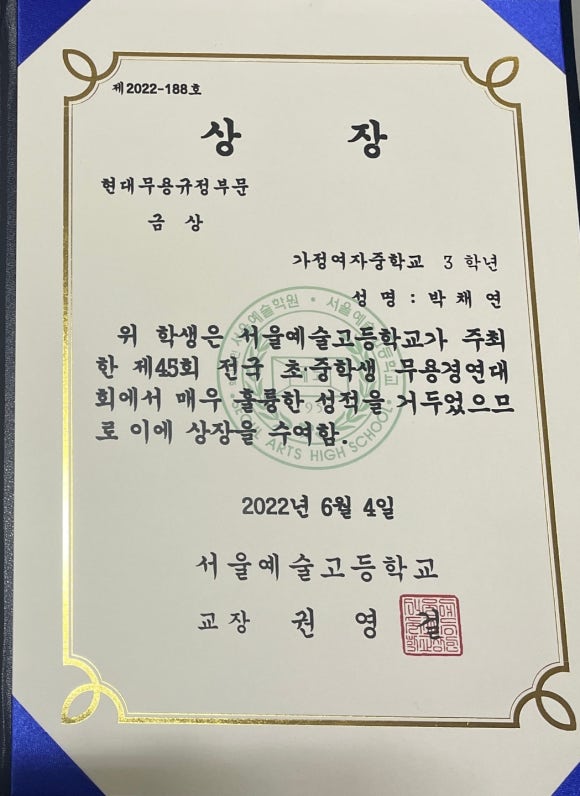 제2022-188호
상 장
현대무용규정부문
금 상
가정여자중학교 3 학년
성 명 : 박 채 연
위 학생은 서울예술고등학교가 주최
한 제45회 전국 초·중학생 무용경연대
회에서 매우 훌륭한 성적을 거두었으므
로 이에 상장을 수여함.
서울예술학원 · 서울예술고등학교
SEOUL ARTS HIGH SCHOOL
2022년 6월 4일
서울예술고등학교
교장 권 영 걸